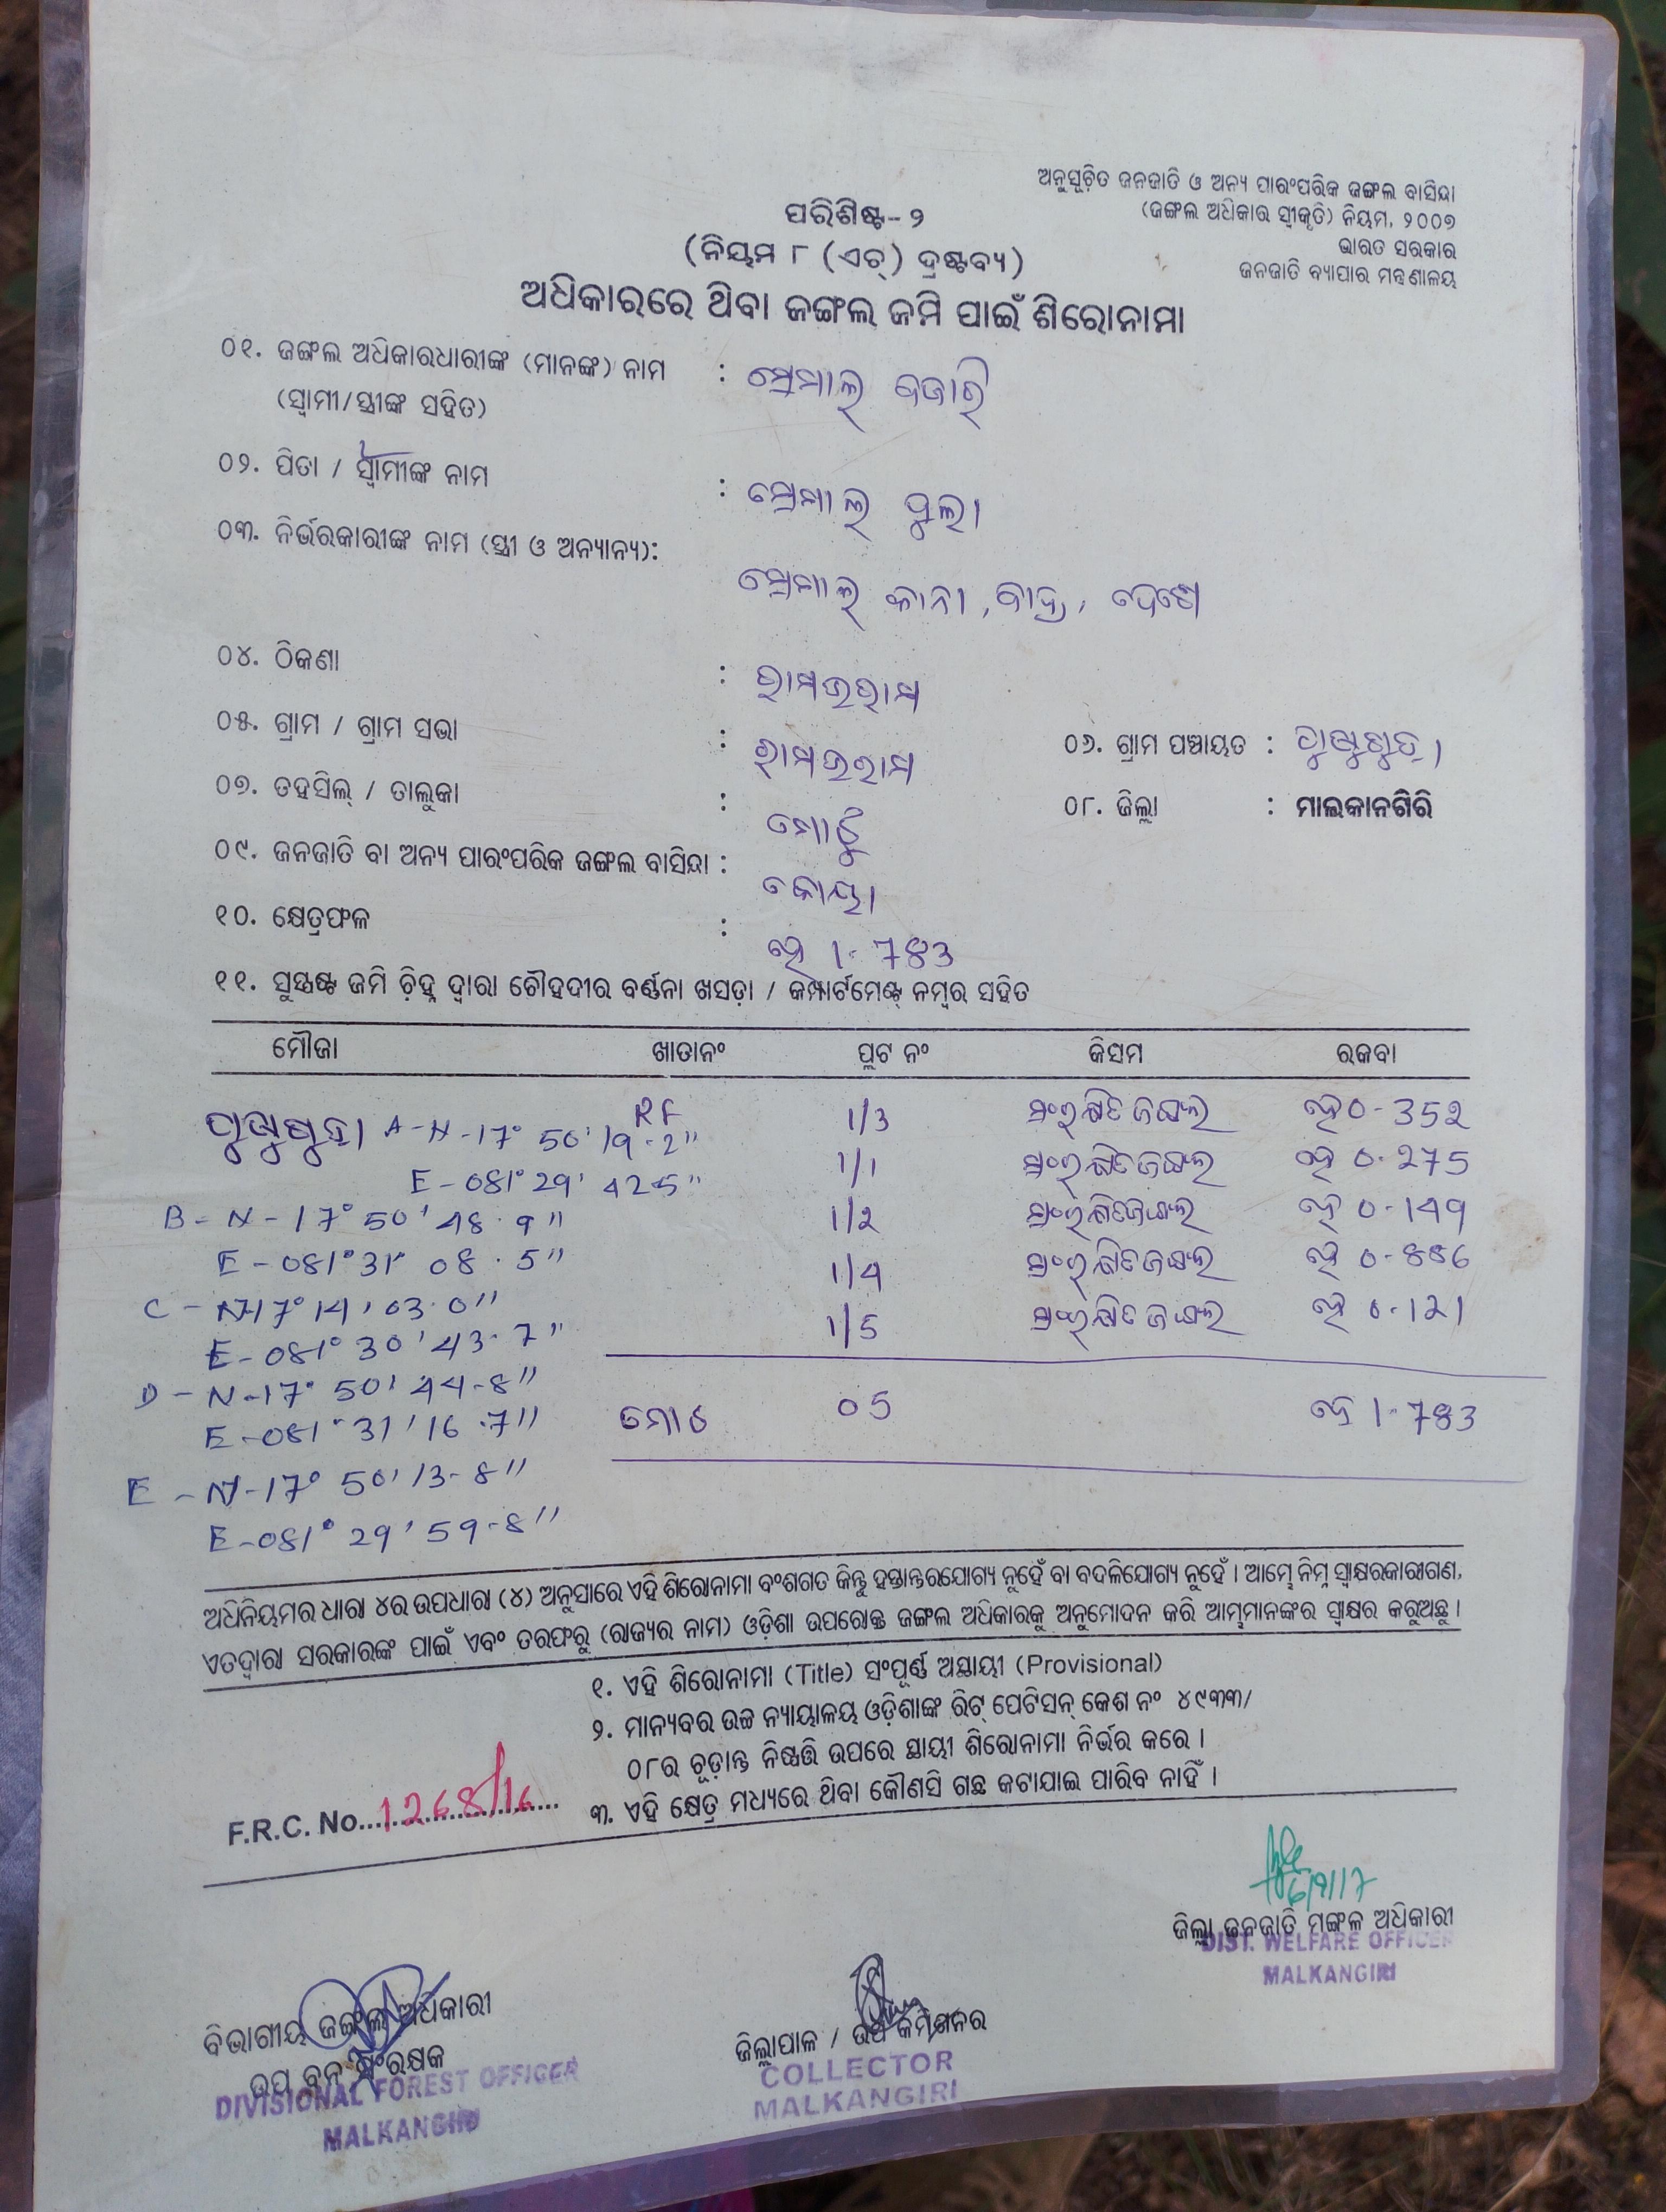 ଅନୁସୂଚିତ ଜନଜାତି ଓ ଅନ୍ୟ ପାରଂପରିକ ଜଙ୍ଗଲ ବାସିନ୍ଦା
(ଜଙ୍ଗଲ ଅଧିକାର ସ୍ୱୀକୃତି) ନିୟମ, ୨୦୦୭
ଭାରତ ସରକାର
ଜନଜାତି ବ୍ୟାପାର ମନ୍ତ୍ରଣାଳୟ
ପରିଶିଷ୍ଟ-୨
(ନିୟମ ୮ (ଏଚ୍) ଦ୍ରଷ୍ଟବ୍ୟ)
ଅଧିକାରରେ ଥିବା ଜଙ୍ଗଲ ଜମି ପାଇଁ ଶିରୋନାମା
୦୧. ଜଙ୍ଗଲ ଅଧିକାରଧାରୀଙ୍କ (ମାନଙ୍କ) ନାମ :
(ସ୍ୱାମୀ/ସ୍ତ୍ରୀଙ୍କ ସହିତ)
୦୨. ପିତା / ସ୍ୱାମୀଙ୍କ ନାମ :
୦୩. ନିର୍ଭରକାରୀଙ୍କ ନାମ (ସ୍ତ୍ରୀ ଓ ଅନ୍ୟାନ୍ୟ):
୦୪. ଠିକଣା :
୦୫. ଗ୍ରାମ / ଗ୍ରାମ ସଭା : ୦୬. ଗ୍ରାମ ପଞ୍ଚାୟତ :
୦୭. ତହସିଲ୍ / ତାଲୁକା : ମୋଟୁ ୦୮. ଜିଲ୍ଲା : ମାଲକାନଗିରି
୦୯. ଜନଜାତି ବା ଅନ୍ୟ ପାରଂପରିକ ଜଙ୍ଗଲ ବାସିନ୍ଦା : କୋୟା
୧୦. କ୍ଷେତ୍ରଫଳ : ହେ 1.783
୧୧. ସୁସ୍ପଷ୍ଟ ଜମି ଚିହ୍ନ ଦ୍ୱାରା ଚୌହଦୀର ବର୍ଣ୍ଣନା ଖସଡ଼ା / କମ୍ପାର୍ଟମେଣ୍ଟ ନମ୍ବର ସହିତ
ମୌଜା ଖାତାନଂ ପ୍ଲଟ ନଂ କିସମ ରକବା
A-N-17° 50' 19.2" RF 1/3 ସଂରକ୍ଷିତ ଜଙ୍ଗଲ ହେ 0-352
E-081° 29' 42.5" 1/1 ସଂରକ୍ଷିତ ଜଙ୍ଗଲ ହେ 0.275
B-N-17° 50' 48.9" 1/2 ସଂରକ୍ଷିତ ଜଙ୍ଗଲ ହେ 0-149
E-081° 31' 08.5" 1/4 ସଂରକ୍ଷିତ ଜଙ୍ଗଲ ହେ 0-886
C-N-17° 14' 03.0" 1/5 ସଂରକ୍ଷିତ ଜଙ୍ଗଲ ହେ 0.121
E-081° 30' 43.7"
D-N-17° 50' 44-8" ମୋଟ 05 ହେ 1-783
E-081° 31' 16.7"
E-N-17° 50' 13-8"
E-081° 29' 59-8"
ଅଧିନିୟମର ଧାରା ୪ର ଉପଧାରା (୪) ଅନୁସାରେ ଏହି ଶିରୋନାମା ବଂଶଗତ କିନ୍ତୁ ହସ୍ତାନ୍ତରଯୋଗ୍ୟ ନୁହେଁ ବା ବଦଳିଯୋଗ୍ୟ ନୁହେଁ । ଆମ୍ଭେ ନିମ୍ନ ସ୍ୱାକ୍ଷରକାରୀଗଣ,
ଏତଦ୍ୱାରା ସରକାରଙ୍କ ପାଇଁ ଏବଂ ତରଫରୁ (ରାଜ୍ୟର ନାମ) ଓଡ଼ିଶା ଉପରୋକ୍ତ ଜଙ୍ଗଲ ଅଧିକାରକୁ ଅନୁମୋଦନ କରି ଆମ୍ଭମାନଙ୍କର ସ୍ୱାକ୍ଷର କରୁଅଛୁ ।
୧. ଏହି ଶିରୋନାମା (Title) ସଂପୂର୍ଣ୍ଣ ଅସ୍ଥାୟୀ (Provisional)
୨. ମାନ୍ୟବର ଉଚ୍ଚ ନ୍ୟାୟାଳୟ ଓଡ଼ିଶାଙ୍କ ରିଟ୍ ପେଟିସନ୍ କେଶ ନଂ ୪୯୩୩/
୦୮ର ଚୂଡ଼ାନ୍ତ ନିଷ୍ପତ୍ତି ଉପରେ ସ୍ଥାୟୀ ଶିରୋନାମା ନିର୍ଭର କରେ ।
୩. ଏହି କ୍ଷେତ୍ର ମଧ୍ୟରେ ଥିବା କୌଣସି ଗଛ କଟାଯାଇ ପାରିବ ନାହିଁ ।
F.R.C. No. 1268/16
6/9/17
ଜିଲ୍ଲା ଜନଜାତି ମଙ୍ଗଳ ଅଧିକାରୀ
DIST. WELFARE OFFICER
MALKANGIRI
ବିଭାଗୀୟ ଜଙ୍ଗଲ ଅଧିକାରୀ
ଉପ ବନ ସଂରକ୍ଷକ
DIVISIONAL FOREST OFFICER
MALKANGIRI
ଜିଲ୍ଲାପାଳ / ଉପ କମିଶନର
COLLECTOR
MALKANGIRI